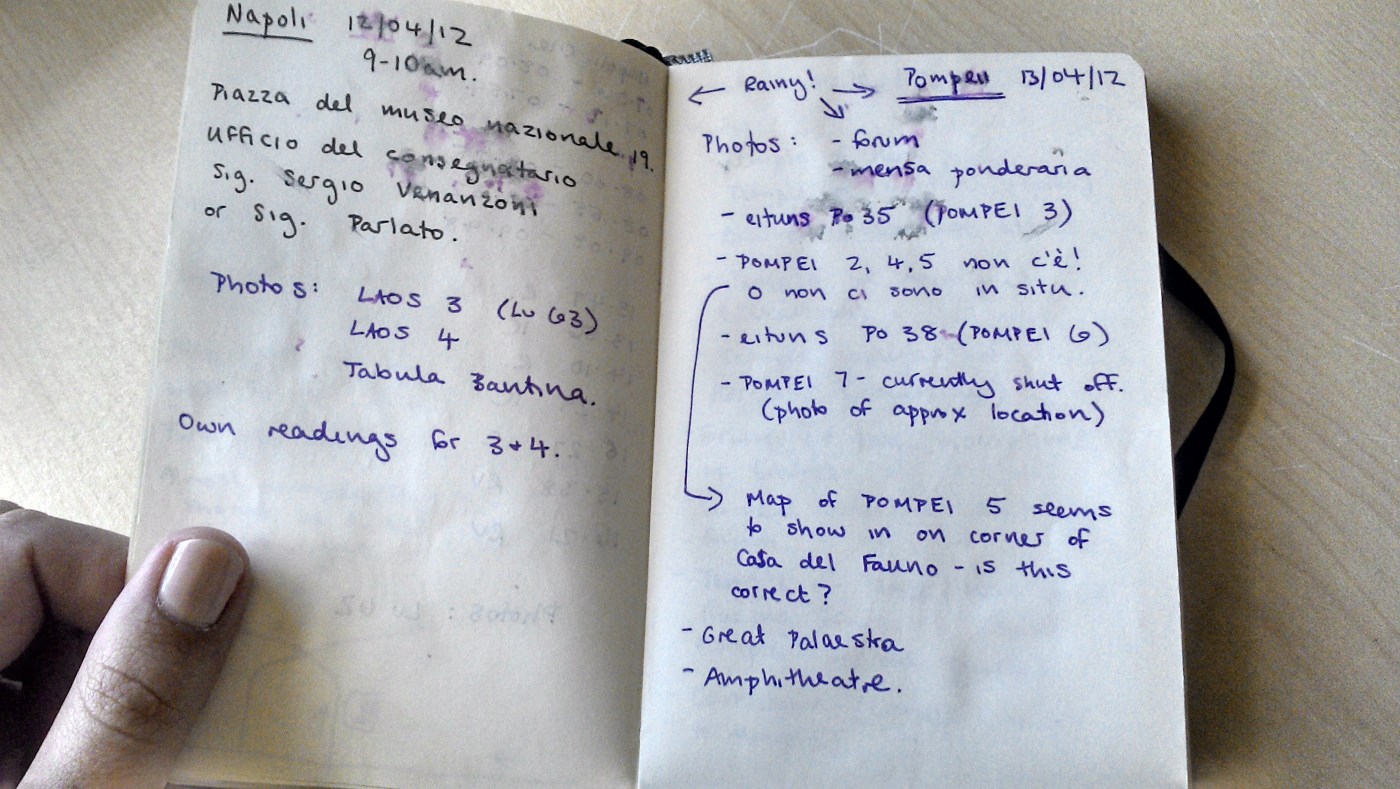 Napoli 12/04/12
9-10am.
Piazza del museo nazionale, 19.
Ufficio del consegnatario
Sig. Sergio Venanzoni
or Sig. Parlato.
Photos: LAOS 3 (Lu 63)
LAOS 4
Tabula Bantina.
Own readings for 3+4.
← Rainy! → Pompeii 13/04/12
↘
Photos: - forum
- mensa ponderaria
- eituns Po 35 (POMPEI 3)
- POMPEI 2, 4, 5 non c'è!
O non ci sono in situ.
- eituns Po 38 (POMPEI 6)
- POMPEI 7 - currently shut off.
(photo of approx location)
→ Map of POMPEI 5 seems
to show in on corner of
Casa del Fauno - is this
correct?
- Great Palaestra
- Amphitheatre.